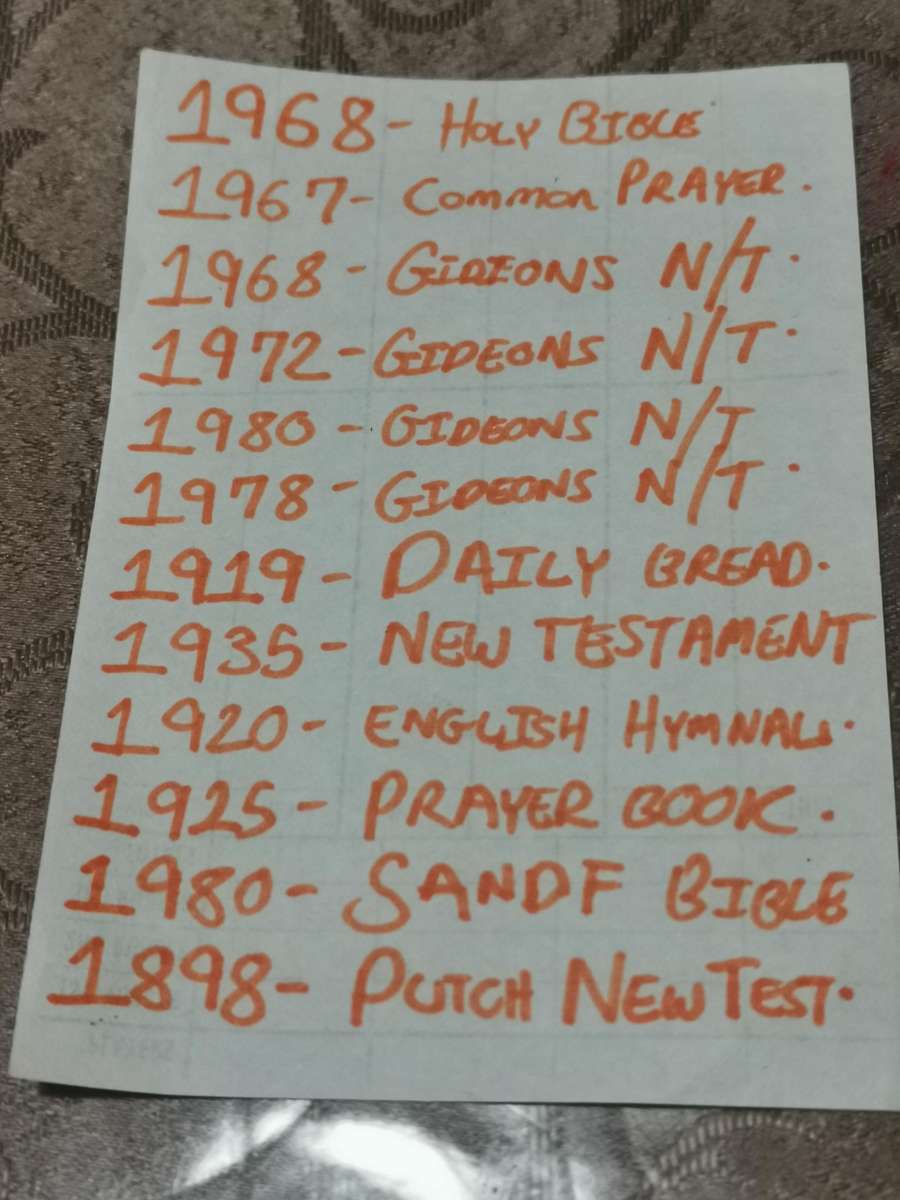 1968- HOLY BIBLE
1967- Common PRAYER.
1968- GIDEONS N/T.
1972- GIDEONS N/T.
1980- GIDEONS N/T
1978- GIDEONS N/T.
1919- DAILY BREAD.
1935- NEW TESTAMENT
1920- ENGLISH HYMNAL.
1925- PRAYER BOOK.
1980- SANDF BIBLE
1898- DUTCH NEW TEST.